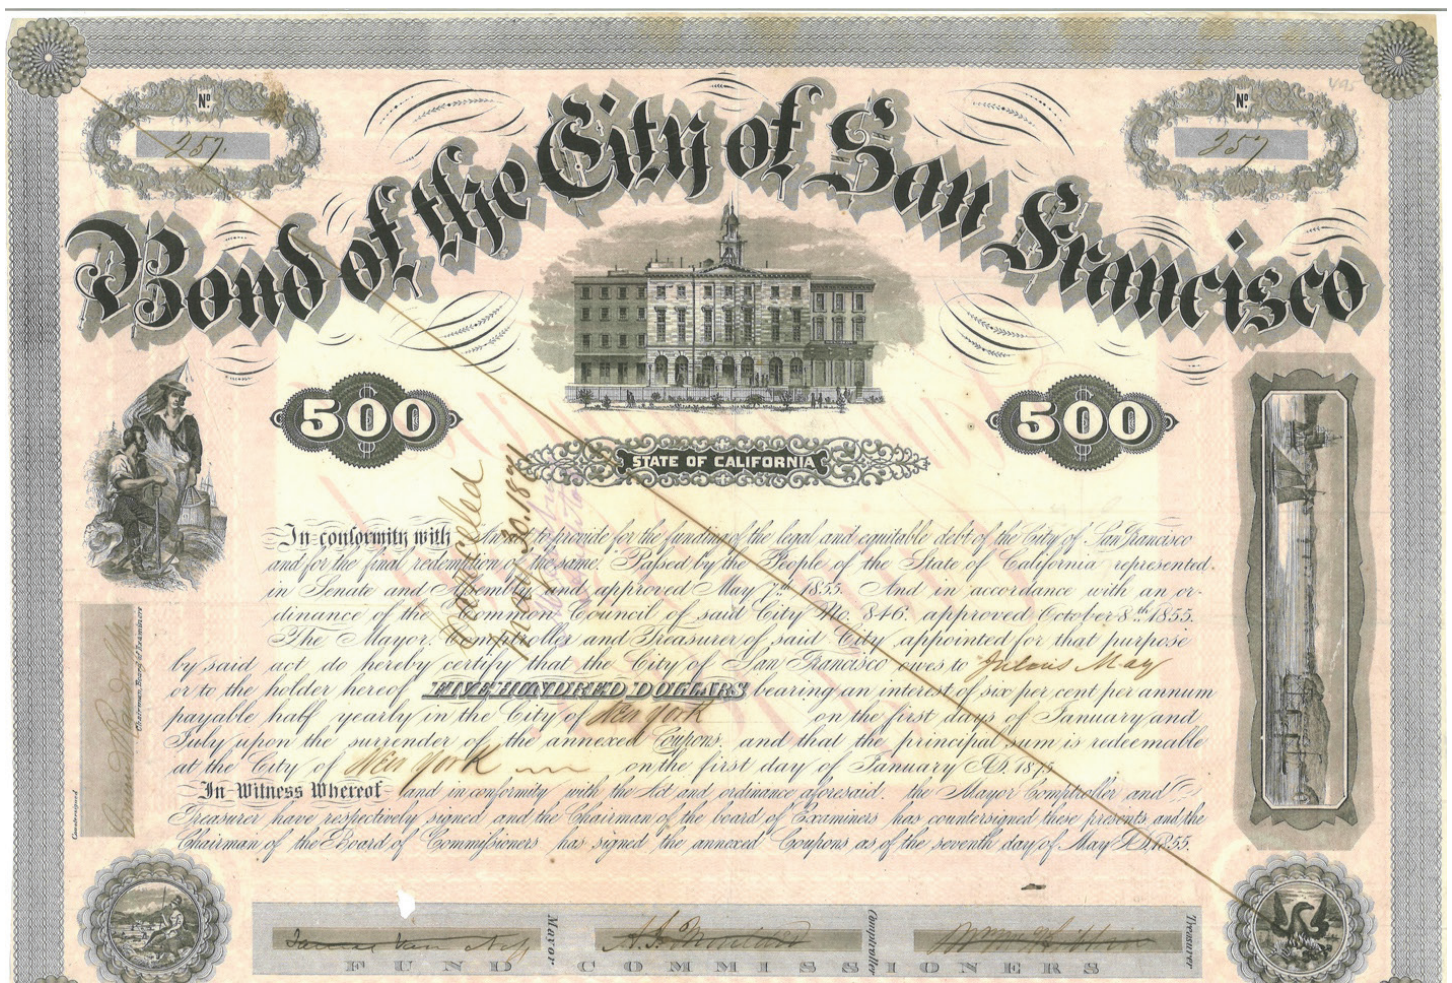 Nº
257.
Nº
257
495
Bond of the City of San Francisco
$
500
$
500
STATE OF CALIFORNIA
Cancelled
30. 1871
In conformity with An act to provide for the funding of the legal and equitable debt of the City of San Francisco
and for the final redemption of the same. Passed by the People of the State of California represented
in Senate and Assembly and approved May 7th 1855. And in accordance with an or-
dinance of the Common Council of said City No. 846. approved October 8th 1855.
The Mayor, Comptroller and Treasurer of said City, appointed for that purpose
by said act do hereby certify that the City of San Francisco owes to Julius May
or to the holder hereof FIVE HUNDRED DOLLARS bearing an interest of six per cent per annum
payable half yearly in the City of New York on the first days of January and
July upon the surrender of the annexed Coupons, and that the principal sum is redeemable
at the City of New York on the first day of January AD. 1875
In Witness Whereof and in conformity with the Act and ordinance aforesaid. the Mayor Comptroller and
Treasurer have respectively signed and the Chairman of the board of Examiners has countersigned these presents and the
Chairman of the Board of Commissioners has signed the annexed Coupons as of the seventh day of May AD. 1855.
Countersigned
Chairman, Board of Examiners
James Van Ness
Mayor
Comptroller
Treasurer
FUND COMMISSIONERS